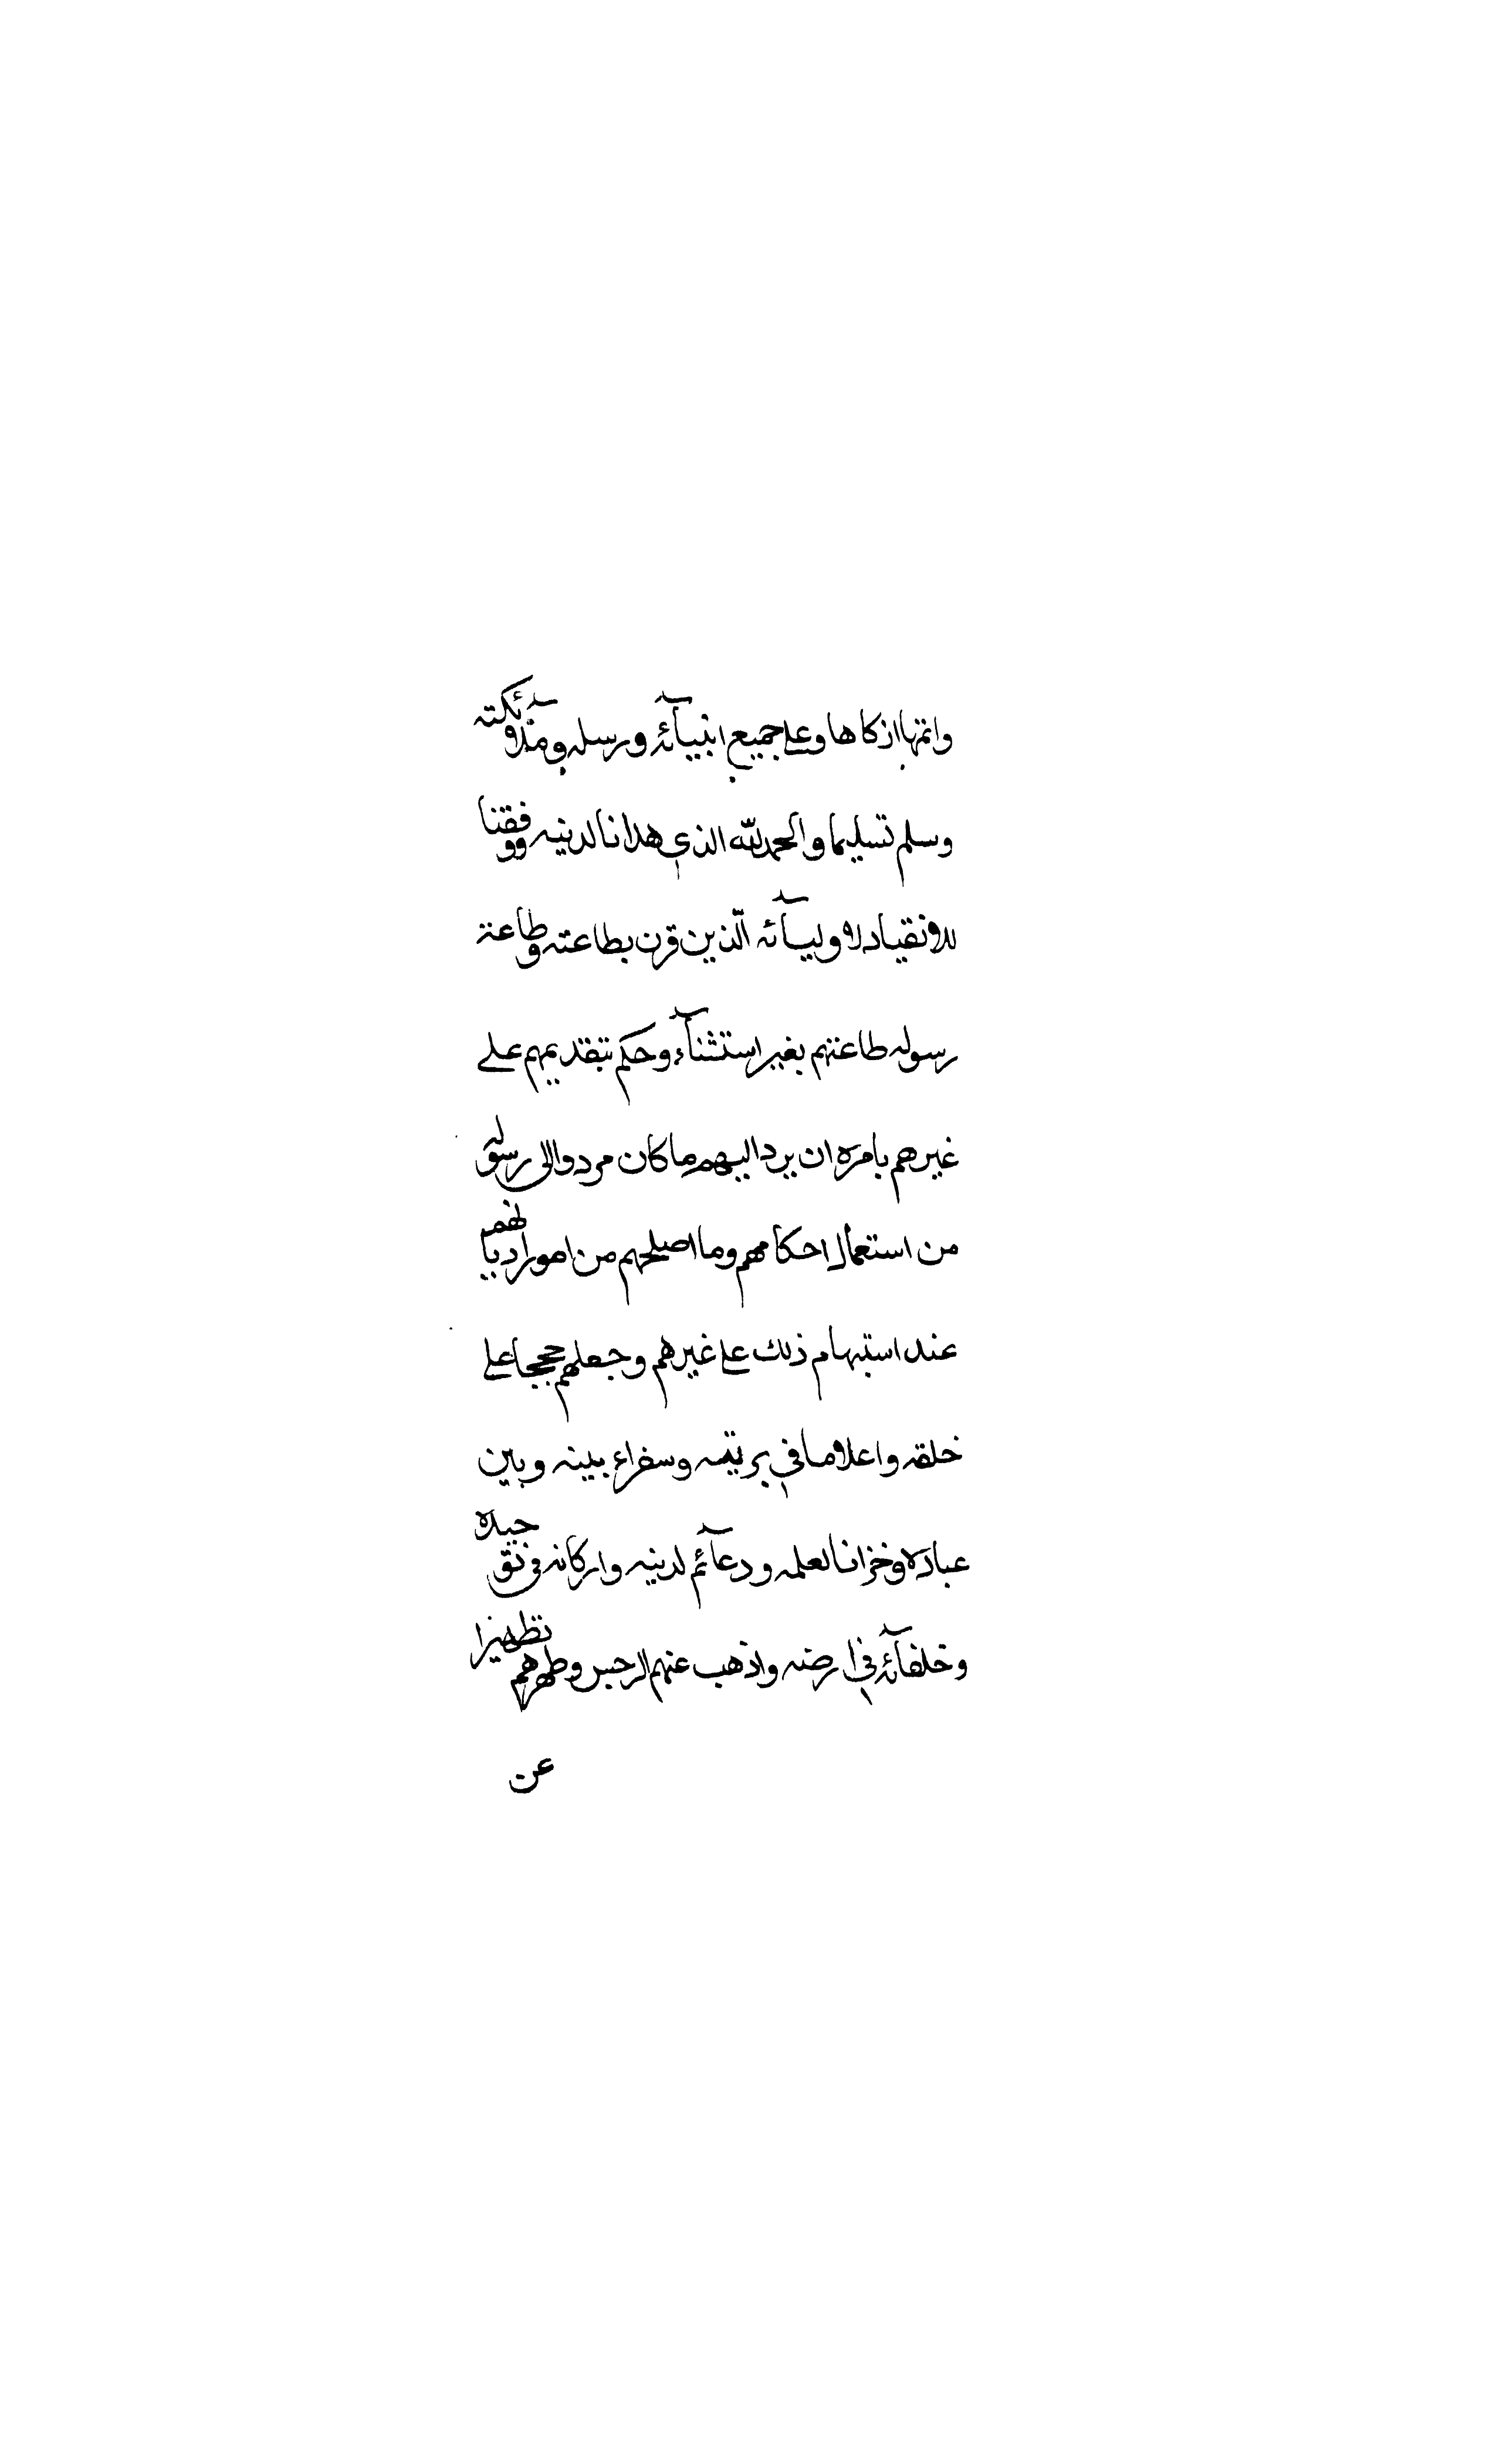 واتمّها ازكاها وعلى جميع انبيآئه ورسله وملآئكته
وسلم تسليما والحمد لله الذي هدانا لدينه ووفقنا
للانقياد لاوليآئه الّذين قرن بطاعته وطاعة
رسوله طاعتهم بغير استثنآء وحكم بتقديمهم على
غيرهم بامره ان يرد اليهم ما كان مردوا الى رسوله
من استعمال احكامهم وما اصلحهم من امور اديانهم
عند استبهام ذلك على غيرهم وجعلهم حججا على
خلقه واعلاما في بريته وسفراء بينه وبين
عباده وخزانا لعلمه ودعآئم لدينه واركانه في توحيده
وخلفآئه في ارضه واذهب عنهم الرجس وطهرهم تطهيرا
عن